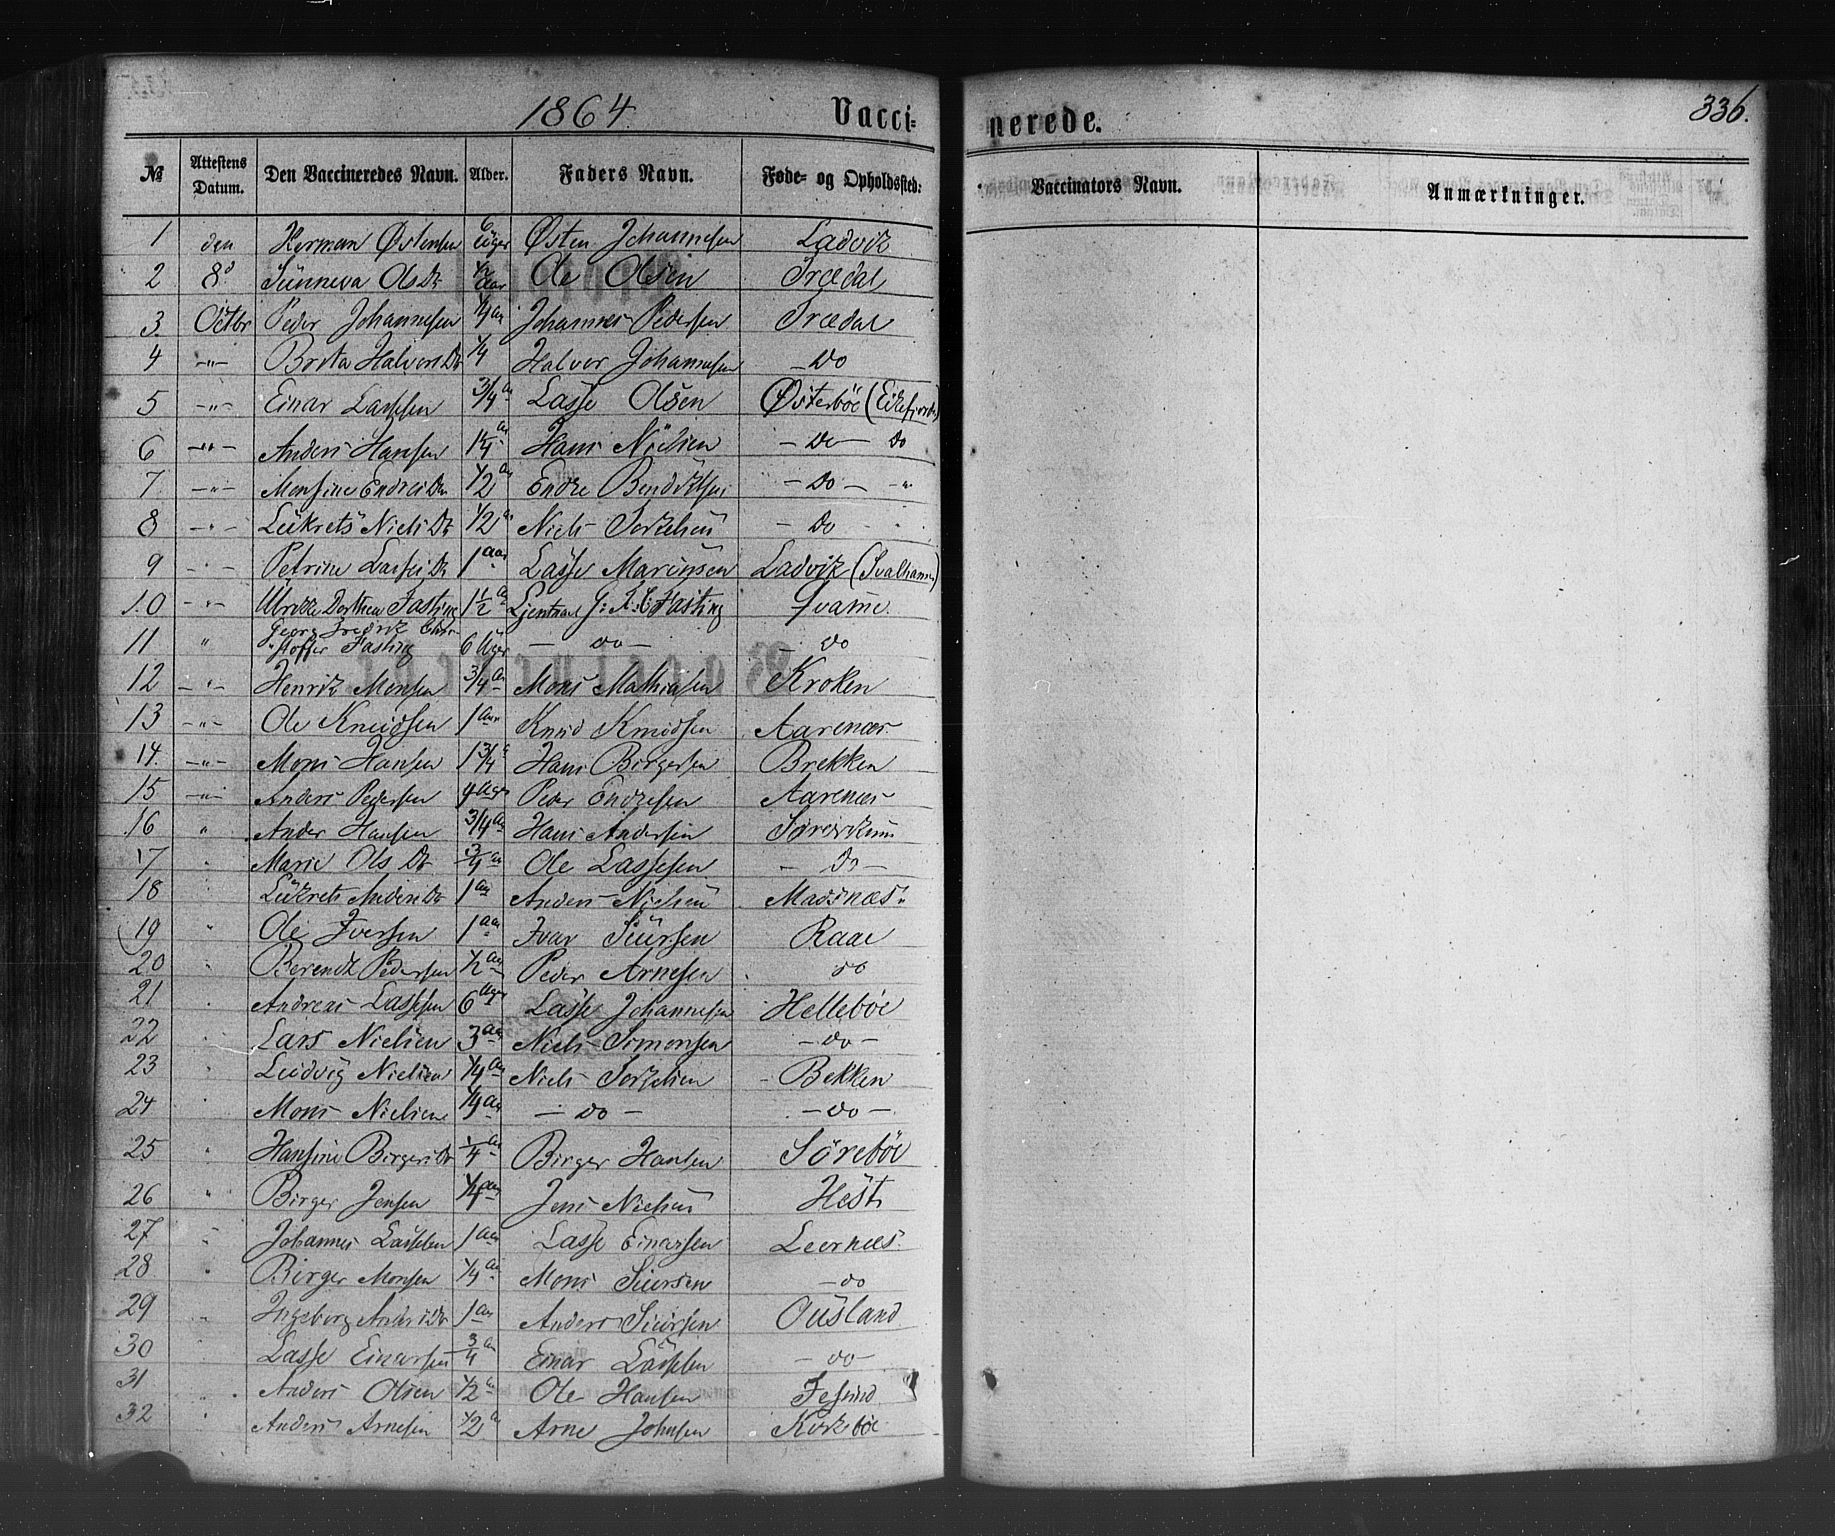 1864. Vacci= nerede. 336.
№ Attestens Datum. Den Vaccineredes Navn. Alder. Faders Navn. Føde- og Opholdssted. Vaccinators Navn. Anmærkninger.
1 den Herman Østensen 6 Uger Østen Johannesen Ladvik
2 8d Sünneva Ols Dr 1/2 Aar Ole Olsen Trædal
3 Octbr Peder Johannesen 1/4 Aar Johannes Pedersen Trædal
4 -"- Brita Halvors Dr 1/4 Halvor Johannesen - Do
5 -"- Einar Lassesen 3/4 a Lasse Olsen Østerbøe (Eikefjord)
6 -"- Anders Hansen 1 1/4 a Hans Nielsen - Do - Do
7 -"- Monsine Endres Dr 1/2 a Endre Bendiktsen - Do - "
8 -"- Lükrets Niels Dr 1/2 a Niels Torkelsen - Do
9 -"- Petrine Lasses Dr 1 Aar Lasse Marünsen Ladvik
10 -"- Ulrikke Dorthea Fasting 1 1/2 a Fasting Qvame
11 " Georg Fredrik Chri-
stoffer Fasting 6 Uger - Do - - Do
12 -"- Henrik Monsen 3/4 a Mons Mathiasen Kroken
13 -"- Ole Knüdsen 1 Aar Knüd Knüdsen Aarenæs
14. -"- Mons Hansen 1 3/4 a Hans Birgersen Brekken
15 -"- Anders Pedersen 4 Uger Peder Endresen Aarenæs
16 " Anders Hansen 3/4 a Hans Andersen
17 " Marie Ols Dr 3/4 a Ole Lassesen - Do -
18 " Lükrets Anders Dr 1 a Anders Nielsen Madsnæs
19 " Ole Iversen 1 aar Ivar Siursen Raae
20 " Berendt Pedersen 1/2 a Peder Arnesen do
21 " Andreas Lassesen 6 Uger Lasse Johannesen Hellebøe
22 " Lars Nielsen 3 aar Niels Simonsen - do -
23 " Ludvig Nielsen 1/4 a Niels Torkelsen - Bekken
24 " Mons Nielsen 1/4 a - do - - do -
25 " Hansine Birgers Dr 1/4 a Birger Hansen Sørebøe
26 " Birger Jensen 1/4 aar Jens Nielsen Hest
27 " Johannes Lassesen 1 aar Lasse Einarsen Leernæs
28 " Birger Monsen 1/4 a Mons Siursen - do
29 " Ingeborg Anders Dr 1 a Anders Siursen Ousland
30 " Lasse Einarsen 3/4 a Einar Lassesen - do -
31 " Anders Olsen 1/2 a Ole Hansen
32 " Anders Arnesen 1/2 a Arne Johnsen Kirkebøe